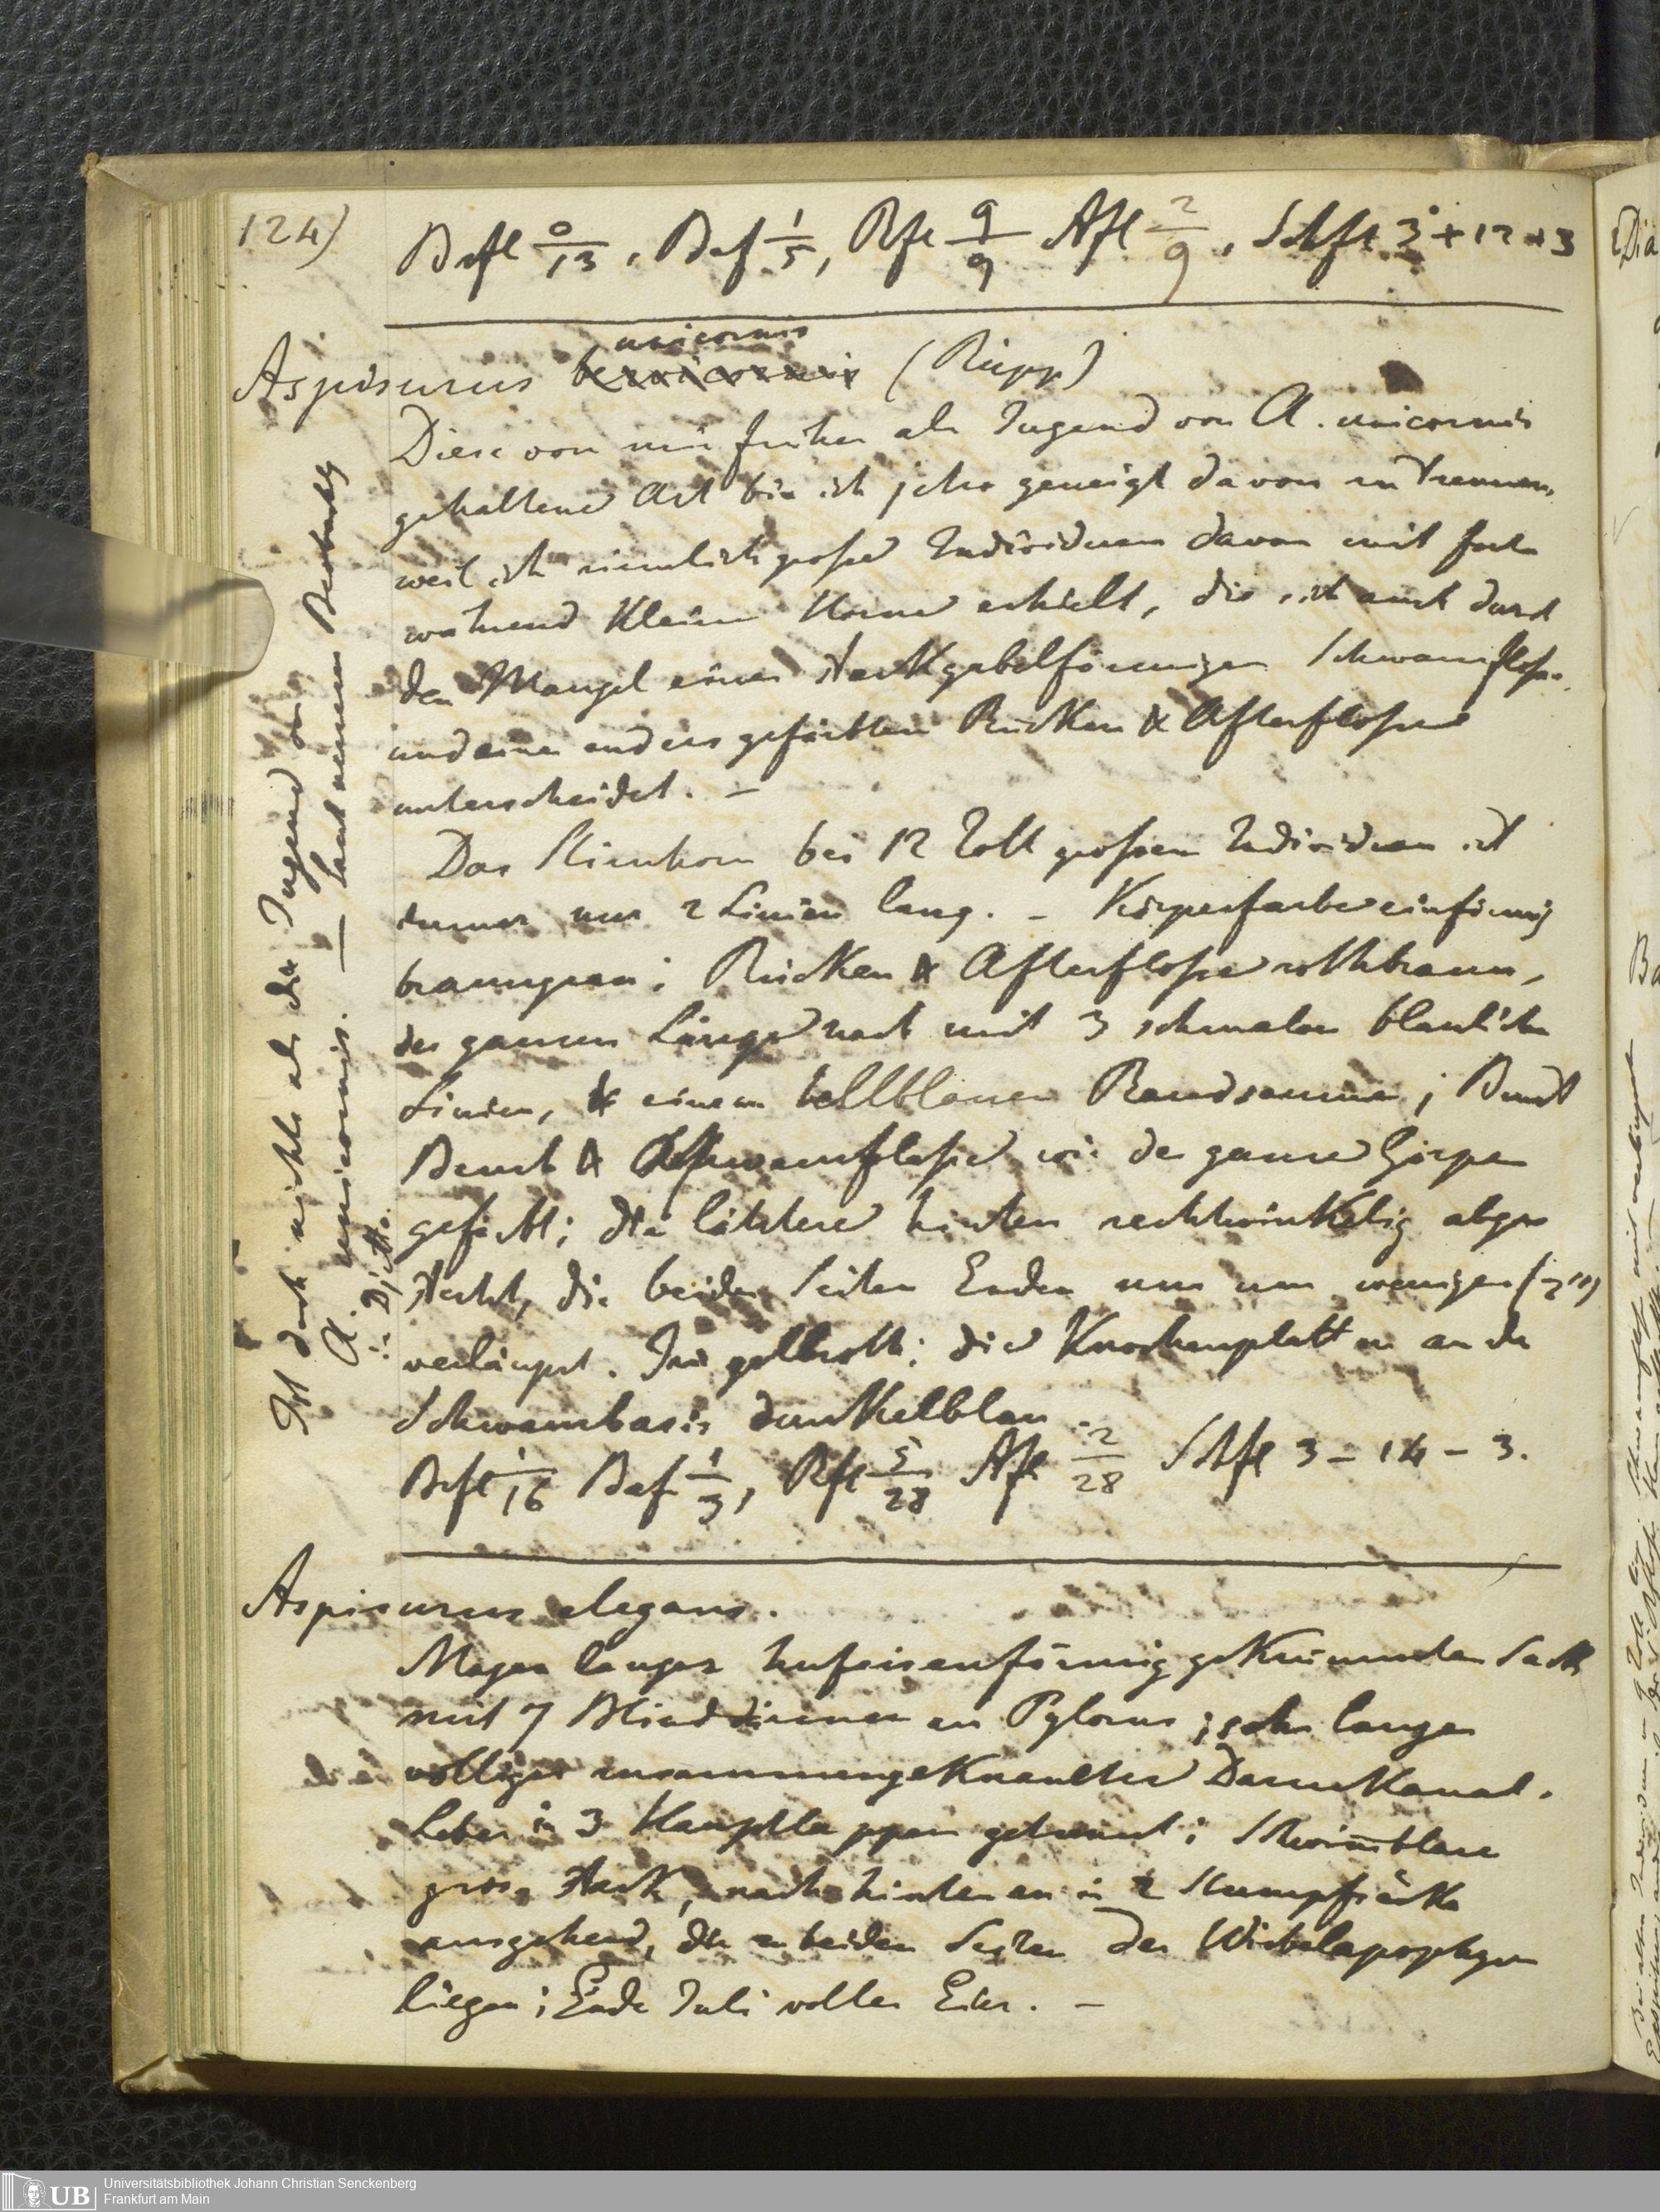 124)
Brfl 0/13, Bafl 1/5, Rfl 9/9 Afl 2/9, Schfl 3 + 12 + 3
unicornis
Aspisurus brevicornis (Rüpp)
Diese von mir früher als Jugend von A. unicornis
gehaltene Art bin ich jetzo geneigt davon zu trennen,
weil ich ziemlich große Individuen davon mit fort
während kleine Horne erhielt, die sich auch durch
den Mangel einer stark gabelförmigen Schwanzfloße.
und einer anders gefärbten Rücken & Afterfloße
unterscheidet. —
Das Stirnhorn bei 12 Zoll großen Individuen ist
immer nur 2 Linien lang. – Körperfarbe einförmig
braungrau; Rücken & Afterfloße rothbraun,
der ganzen Länge nach mit 3 schmalen blaulichen
Linien, & einem hellblauen Randsaume; Brust
Bauch & Schwanzfloße wie der ganze Körper
gefärbt; die letztere hinten rechtwinkelig abge
stutzt, die beiden Seiten Enden nur um weniger
verlängert. Iris gelbroth; die Knochenplatten an der
Schwanzbasis dunkelblau.
Brfl 1/16 Bafl 1/3, Rfl 5/28 Afl 2/28 Schfl 3 – 14 – 3.
Ist doch nichts als die Jugend von
A. unicornis. — laut neuern Beobachtg
in Djetta.
Aspisurus elegans.
Magen langer hufeisenförmig gekrümmter Sack
mit 7 Blinddärmen am Pylorus; sehr langer
völliger zusammengeknaulter Darmkanal.
Leber in 3 Hauptlappen getrennt; Schwimblase
gros, stark, nach hinten zu in 2 Stumpfsäcke
ausgehend, die zu beiden Seiten der Wirbelapophysen
liegen; Ende Juli voller Eier. —
Universitätsbibliothek Johann Christian Senckenberg
Frankfurt am Main
UB